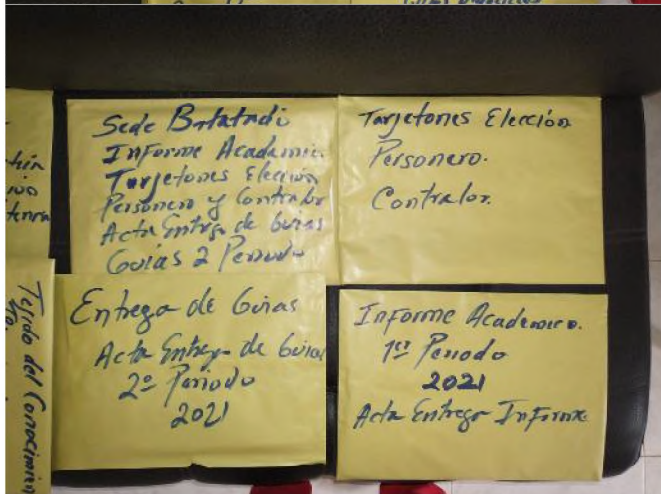 Sede
Informe Academic
Tarjetones Elección
Personero y Contralor
Acta Entrega de Guias
Guias 2 Periodo
Tarjetones Elección
Personero.
Contralor.
Entrega de Guias
Acta Entrega de Guias
2º Periodo
2021
Informe Academico.
1er Periodo
2021
Acta Entrega Informe
Tejido del Conocimien